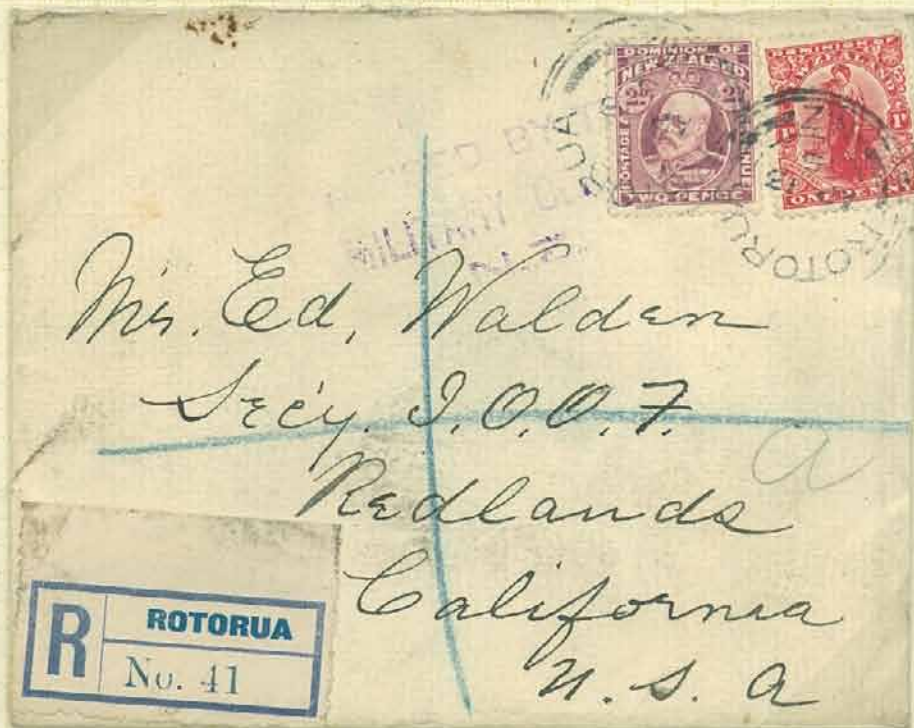 DOMINION OF
NEW ZEALAND
POSTAGE
TWO PENCE
DOMINION OF
ONE PENNY
ROTORUA
PASSED BY
MILITARY
Mr. Ed, Walden
Sec'y. I.O.O.F.
Redlands
California
U. S. A
R
ROTORUA
No. 41